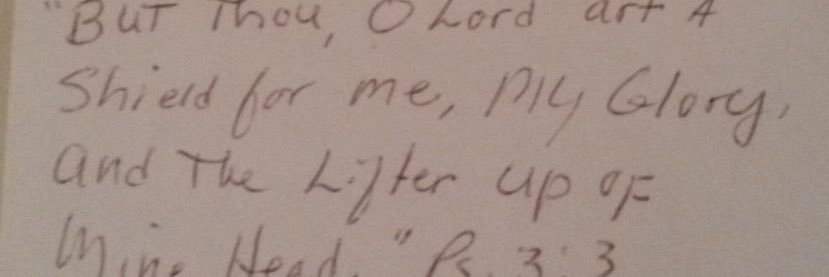 "But Thou, O Lord art A
Shield for me, My Glory,
and The Lifter up OF
Mine Head." Ps. 3:3